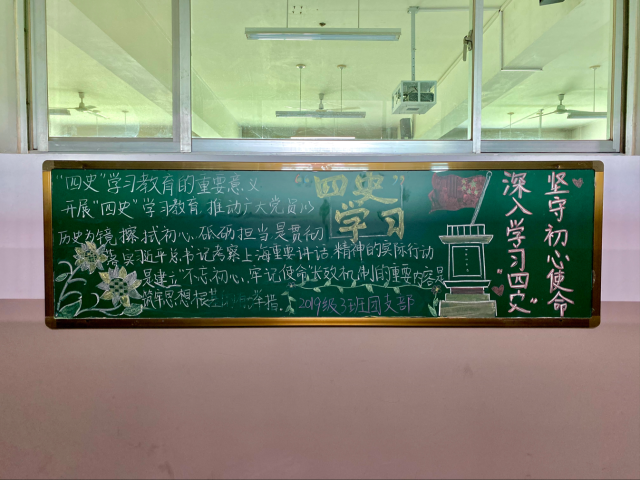 "四史"学习教育的重要意义
开展"四史"学习教育,推动广大党员以
历史为镜,擦拭初心、砥砺担当是贯彻
落实习近平总书记考察上海重要讲话、精神的实际行动
是建立"不忘初心、牢记使命"长效机制的重要内容是
筑牢思想根基的 举措.
"四史"
学习
2019级3班团支部
坚守初心使命
深入学习"四史"